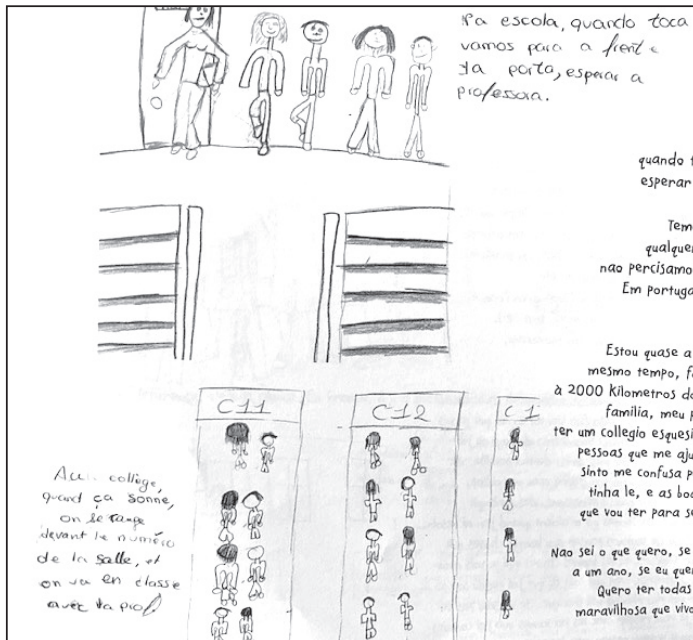 Na escola, quando toca
vamos para a frente
da porta, esperar a
professora.
quando t
esperar
Tem
qualquer
nao percisamo
Em portuga
Estou quase a
mesmo tempo, fa
à 2000 Kilometros do
familia, meu p
ter um collegio esquesi
pessoas que me aju
sinto me confusa p
tinha le, e as boa
que vou ter para se
Nao sei o que quero, se
a um ano, se eu quer
Quero ter todas
maravilhosa que vivo
C11
C12
C1
Au collège,
quand ça sonne,
on se range
devant le numéro
de la salle, et
on va en classe
avec la prof